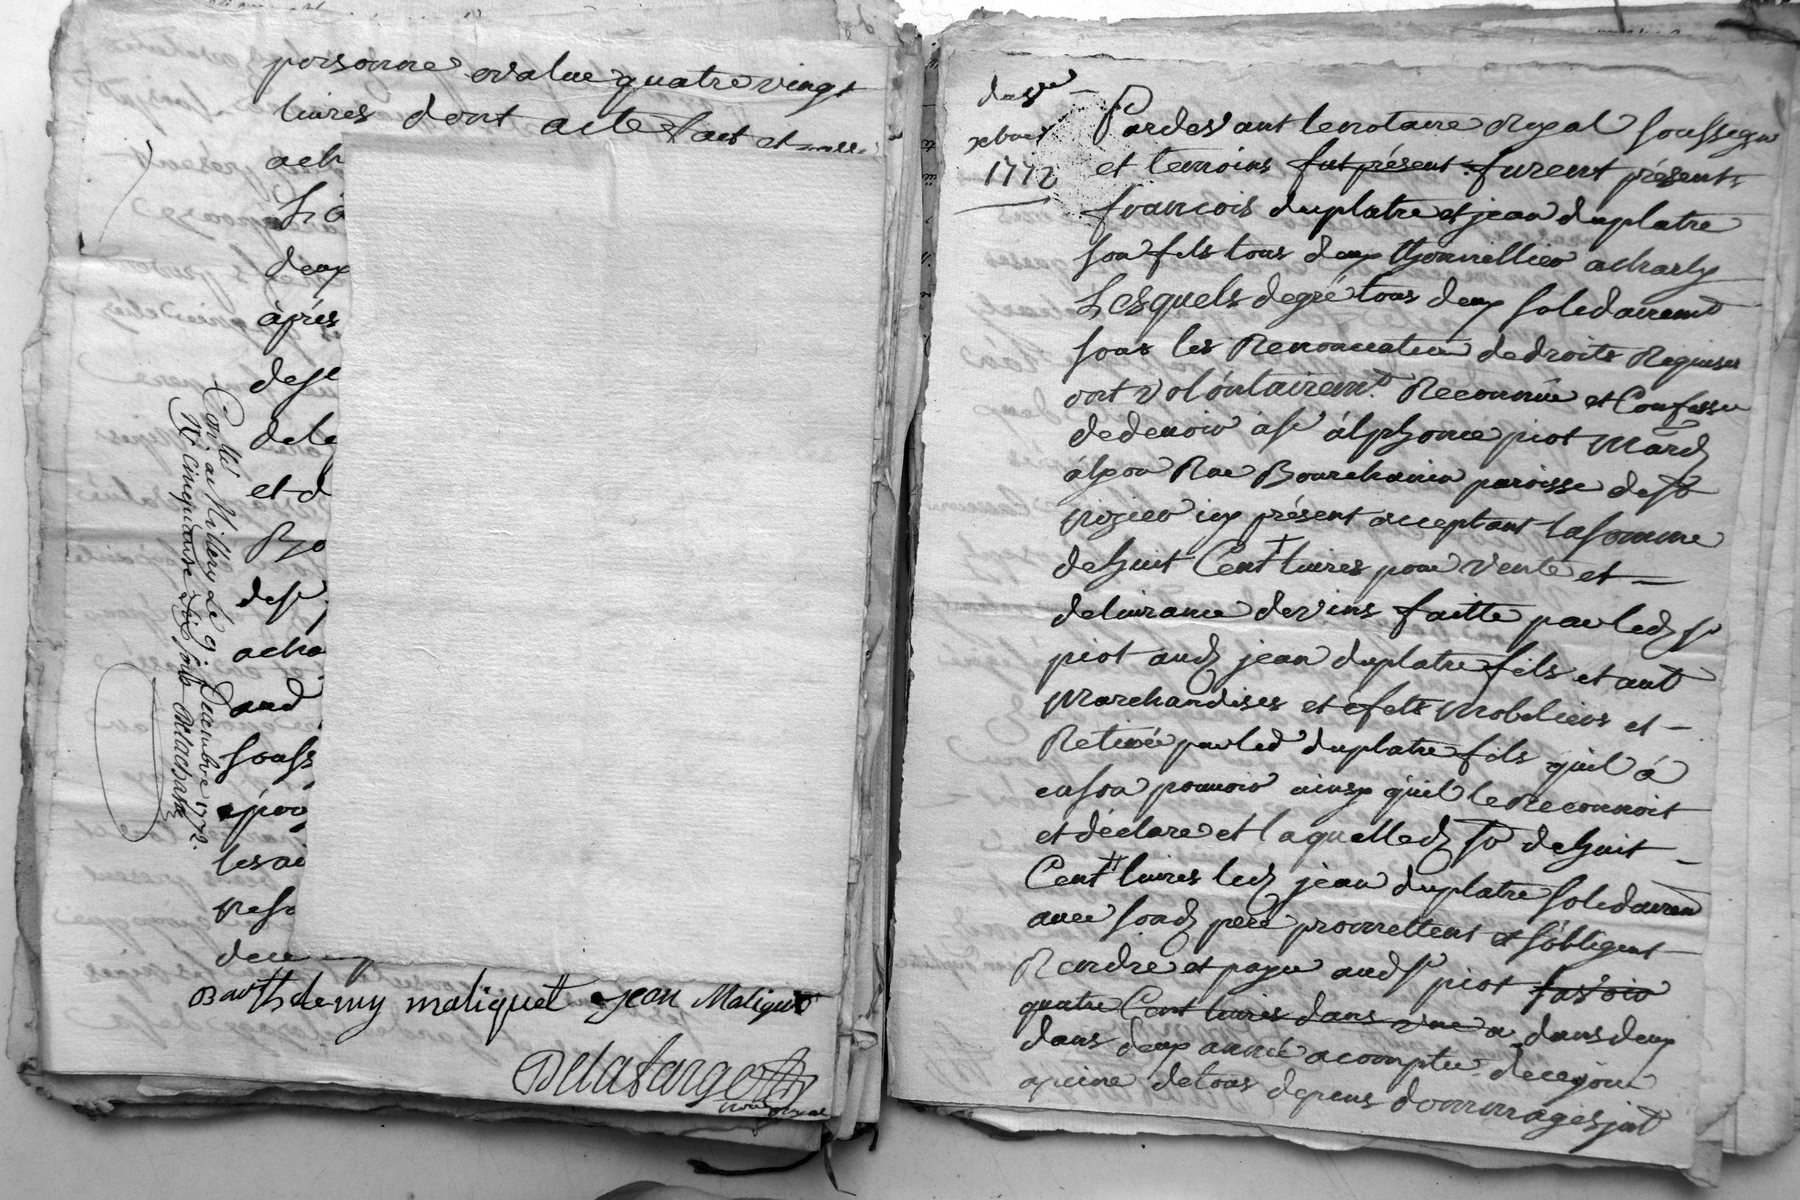 personne evalue quatre vingt
livres dont acte fait et
ach
Lo
deux
aprés
dese
dele
et d
Bo
desd
acha
aud
souss
epou
les ai
pesa
dece
Barthelemy maliquet jean Maliquet
Delafarge
notaire royal
Conllé
Con. au Millery Le 9 Decembre 1772.
R cinquante six sols
xbre
1772
Pardevant le notaire Royal soussigné
et temoins fut présent furent présents
francois duplatre et jean duplatre
son fils tous deux thonnellier a charly
Lesquels de gré tous deux soledairemt
sous les Renonciation de droits Requises
ont volontairemt. Reconnue et Confessé
de devoir a sr alphonce piot mard
a lyon Rue Bourchanin paroisse de st
nizier icy présent acceptant la somme
de huit Cent livres pour vente et
delivrance de vins faitte par led sr
piot aud jean duplatre fils et aut
marchandises et efets mobiliers et
Retirée par led duplatre fils quil á
en son pouvoir ainsy quil le reconnoit
et déclare et laquelled so de huit
Cent livres led jean duplatre soledairemt
avec sond pere promettent et sobligent
Rendre et payer aud sr piot savoir
quatre Cent livres dans une a dans deux
dans deux année a compter de ce jour
a peine de tous depens dommages int